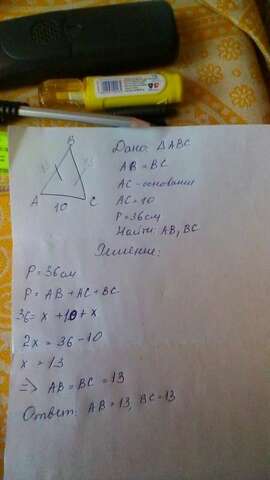 B
A 10 C
Дано: ΔABC
AB = BC
AC - основание
AC = 10
P = 36 см
Найти: AB, BC
Решение:
P = 36 см
P = AB + AC + BC
36 = x + 10 + x
2x = 36 - 10
x = 13
=> AB = BC = 13
Ответ: AB = 13, BC = 13